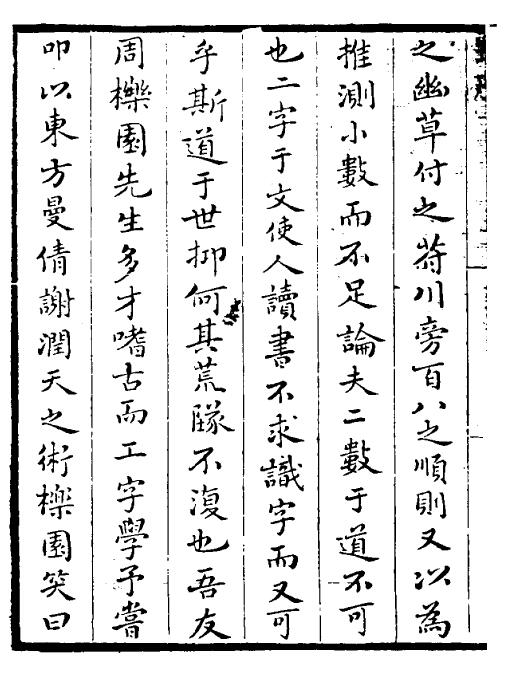 之幽草付之荇川旁百八之順則又以為
推測小數而不足論夫二數于道不可
也二字于文使人讀書不求識字而又可
乎斯道于世抑何其荒隊不復也吾友
周櫟園先生多才嗜古而工字學予嘗
叩以東方曼倩謝潤天之術櫟園笑曰